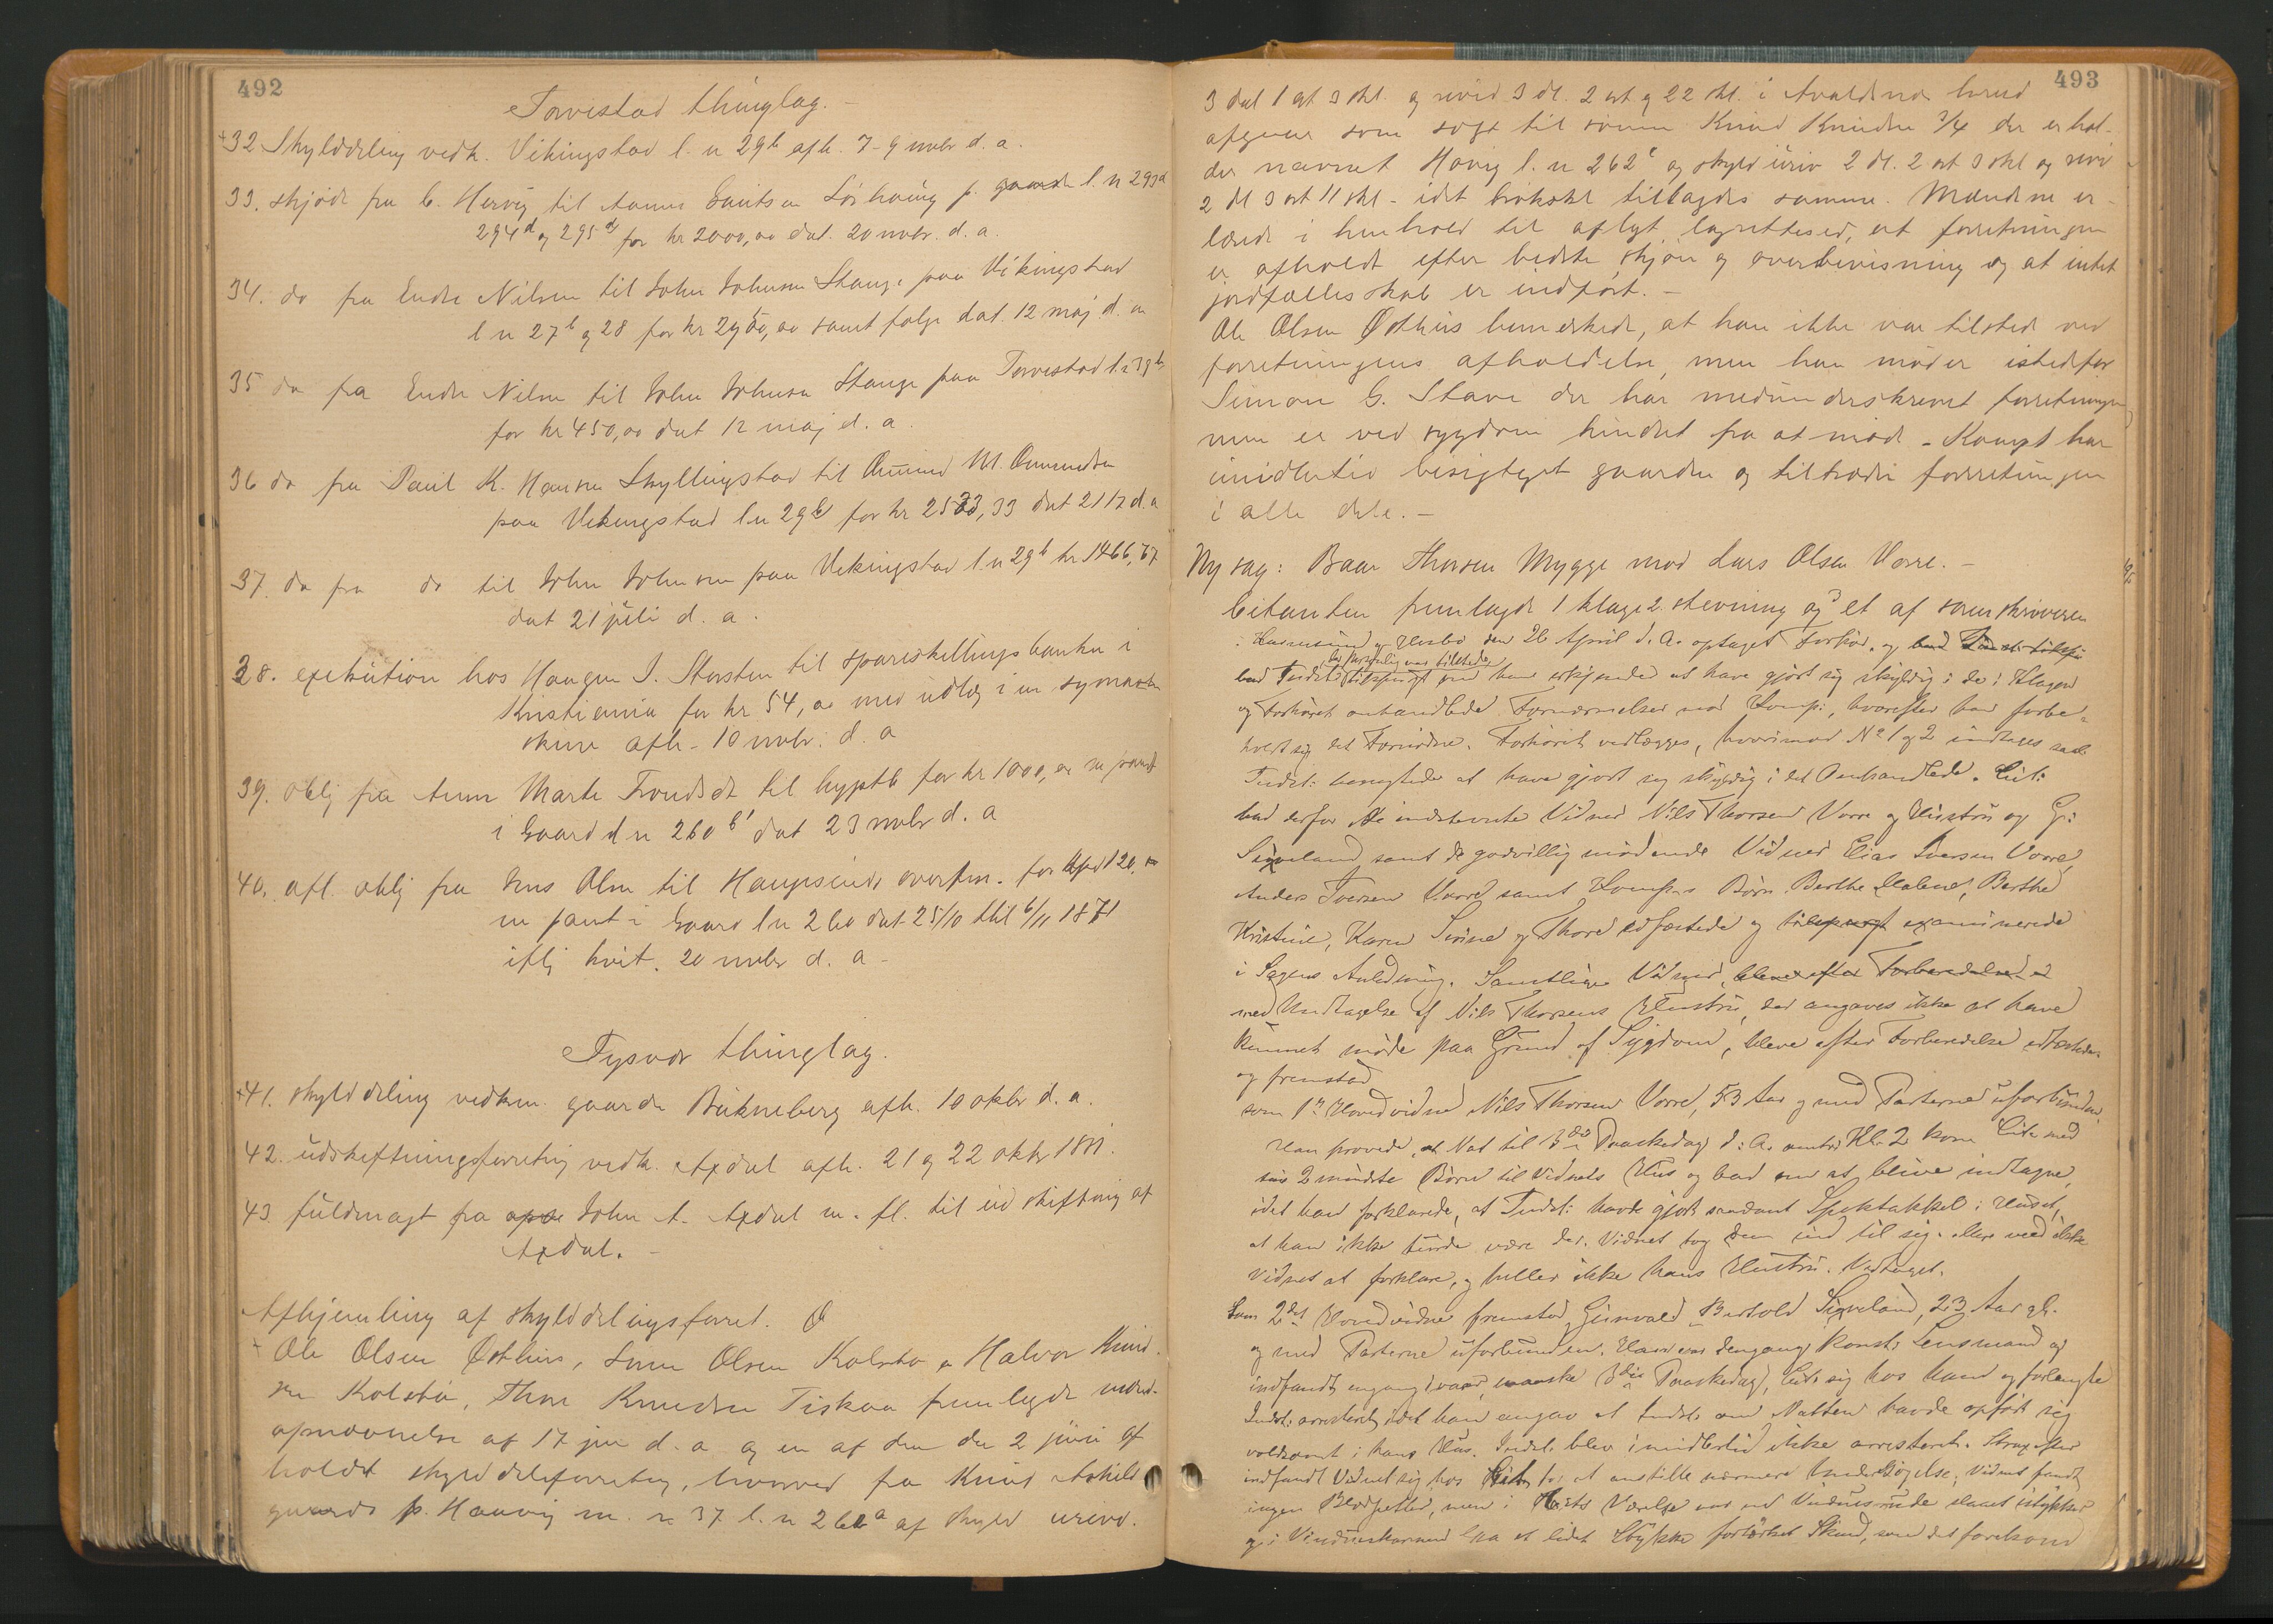 492
Torvestad thinglag. -
+32 Skylddeling vedk. Vikingstad l. n 29b afh. 7-9 novbr d. a.
33. skjøde fra C. Hervig til Aanne Gautsen Sørhaug p. gaarde l. n 293d
294d og 295d for kr 2000,00 dat. 20 novbr. d. a.
34. do fra Endre Nilsen til John Johnsen Stange paa Vikingstad
l n 27b og 28 for kr 2950,00 samt følge dat. 12 maj d. a
35 do fra Endre Nilsen til John Johnsen Stange paa Torvestad l. n 39b
for kr 450,00 dat 12 maj d. a.
36 do fra Paul K. Hansen Skyllingstad til Ommund M. Ommundsen
paa Vikingstad l n 29b for kr 2533,33 dat 21/7 d. a
37. do fra do til John Johnsen paa Vikingstad l. n 29b kr 1466,67
dat 21 juli d. a.
38. exekution hos Haagen J. Storsten til spareskillingsbanken i
Kristiania for kr 54,00 med udlæg i en symaskine
afh. 10 novbr. d. a
39. oblj fra Anne Marte Trondsdt til hyptb for kr 1000,00 m pant
i Gaard l n 260 b1 dat 23 novbr d. a
40. afl. oblj fra Jens Olsen til Haugesunds overfm. for spd 120,
m pant i Gaard l n 260 dat 25/10 thl 6/11 1871
iflg kvit. 20 novbr d. a -
Tysvær thinglag.
+41. skylddeling vedkm. gaarden Bukneberg afh. 10 oktbr d. a.
42. udskiftningsforretning vedk. Axdal afh. 21 og 22 oktbr 1881.
43. fuldmagt fra John A. Axdal m. fl. til udskiftning af
Axdal. -
Afhjemling af skylddelingsforret.
Ole Olsen Østhus, Soren Olsen Kolstø, Halvor Knud-
sen Kolstø, Thore Knudsen Tiskaa fremlagde mænd-
opnævnelse af 17 jun d. a og en af dem den 2 juni af
holdt skylddelsforretning, hvorved fra Knud Askild
gaards p. Haavig m. n 37 l. n 262a af skyld urevd.
493
3 dal 1 ort 3 skl. og revid 3 dl. 2 ort og 22 skl. i Avaldsnæs
afgives som solgt til sønnen Knud Knudsen 3/4 der er hol-
der nævnet Høvig l. n 262c og skyld urev 2 dl. 2 ort 3 skl og revi
2 dl 3 ort 11 skl - idet brøkskl tillagdes samme. Mændene er-
lærede i henhold til aflagt lagrettesed, at forretningen
er afholdt efter bedste skjøn og overbevisning og at intet
jordfællesskab er indført. -
Ole Olsen Østhus bemærkede, at han ikke var tilstede ved
forretningens afholdelse, men han møder istedetfor
Simon G. Stave der har medunderskrevet forretningen,
men er ved sygdom hindret fra at møde. - Kompt har
imidlertid besigtiget gaarden og tiltræder forretningen
i alle dele. -
Ny sag: Baar Thorsen Mygge mod Lars Olsen Vorre. -
Citanten fremlagde 1 klage 2 stevning og 3 et af sorenskriveren
i Karmsund og Hesbø den 26 April d. A. optaget Forhør, og bad Indst. tilspu
bad Indst. der personlig var tilstede tilspurgt om han erkjendte at have gjort sig skyldig i de i Klagen
og Forhøret omhandlede Fornærmelser mod Komp:, hvorefter han forbe-
holdt sig det Fornødne. Forhøret vedlægges, hvorimod No 1 og 2 indtages saal
Indst: benægtede at have gjort sig skyldig i det Omhandlede. Cit:
bad derfor de indstevnte Vidner Nils Thorsen Vorre og Hustru og G:
Sixveland samt de godvillig mødende Vidner Elias Iversen Vorre,
Anders Iversen Vorre samt Komp:s Børn Berthe Malene, Berthe
Kristine, Karen Serine og Thore edfæstede og tilspurgt examinerede
i Sagens Anledning. Samtlige Vidner, bleve efter Forberedelse
med Undtagelse af Nils Thorsens Hustru, der angaves ikke at have
kunnet møde paa Grund af Sygdom, bleve efter Forberedelse edfæstede
og fremstod
som 1ste Hovedvidne Nils Thorsen Vorre, 53 Aar og med Parterne uforbunden.
Han provede, at Nat til 3die Paaskedag d: A. omtr Kl. 2 kom Cit. med
sine 2 mindste Børn til Vidnets Hus og bad om at blive indtagne,
idet han forklarede, at Indst: havde gjort saadant Spektakkel i Huset,
at han ikke turde være der. Vidnet tog dem ind til sig. Mere veed ikke
Vidnet at forklare, og heller ikke hans Hustru. Vedtaget.
Som 2det Hovedvidne fremstod Gunvald Bertold Sixveland, 23 Aar gl.
og med Parterne uforbunden. Han var dengang konst. Lensmand og
indfandt engang ivaar, maaske 3die Paaskedag, Cit. sig hos ham og forlangte
Indst. arresteret, idet han angav at Indst. om Natten havde opført sig
voldsomt i hans Hus. Indst. blev imidlertid ikke arresteret. Strax efter
indfandt Vidnet sig hos Cit. for at anstille nærmere Undersøgelse. Vidnet fandt
ingen Blodpletter, men i Værelse var en Vinduesrude slaaet istykker
og i Vindueskarmen laa et lidet Stykke fortørket Skind, som det forekom